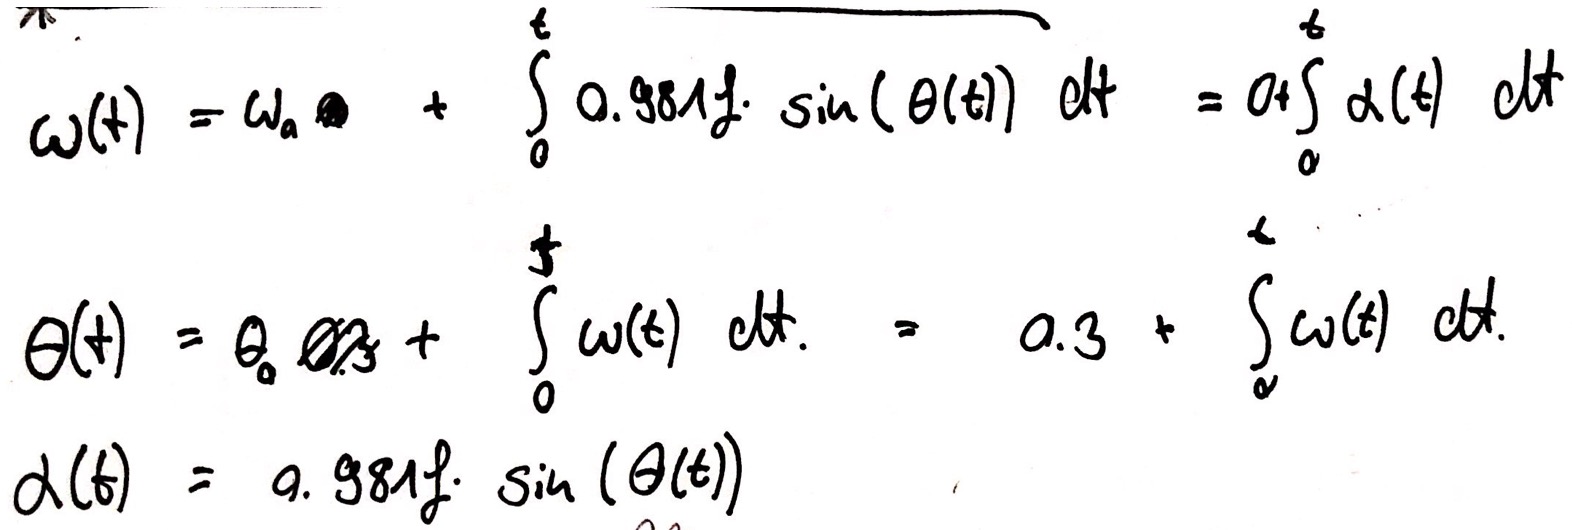 ω(t) = ω₀ + ∫₀ᵗ 0.981f· sin(θ(t)) dt = 0+∫₀ᵗ α(t) dt
θ(t) = θ₀ + ∫₀ᵗ ω(t) dt. = 0.3 + ∫₀ᵗ ω(t) dt.
α(t) = 0.981f· sin(θ(t))